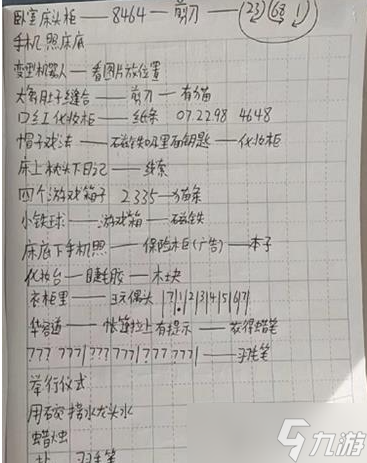 卧室床头柜——8464—剪刀—(23)(68 1)
手机照床底
变型机器人—看图片放位置
大象肚子缝合——剪刀—有猫
口红化妆柜——纸条 07.2298 4648
帽子戏法——磁铁吸里面钥匙—化妆柜
床上枕头下日记——线索
四个游戏箱子 2335—猫条
小铁球——游戏箱—磁铁
床底下手机照——保险柜(广告)—本子
化妆台—睫毛胶—木块
衣柜里——玩偶头|7|1|2|3|4|5|6|7|
华容道——帐篷拉上有提示——获得蜡笔
??? ???|??? ???|??? ???|——羽毛笔
举行仪式
用碗接水龙头水
蜡烛
羽毛笔
九游